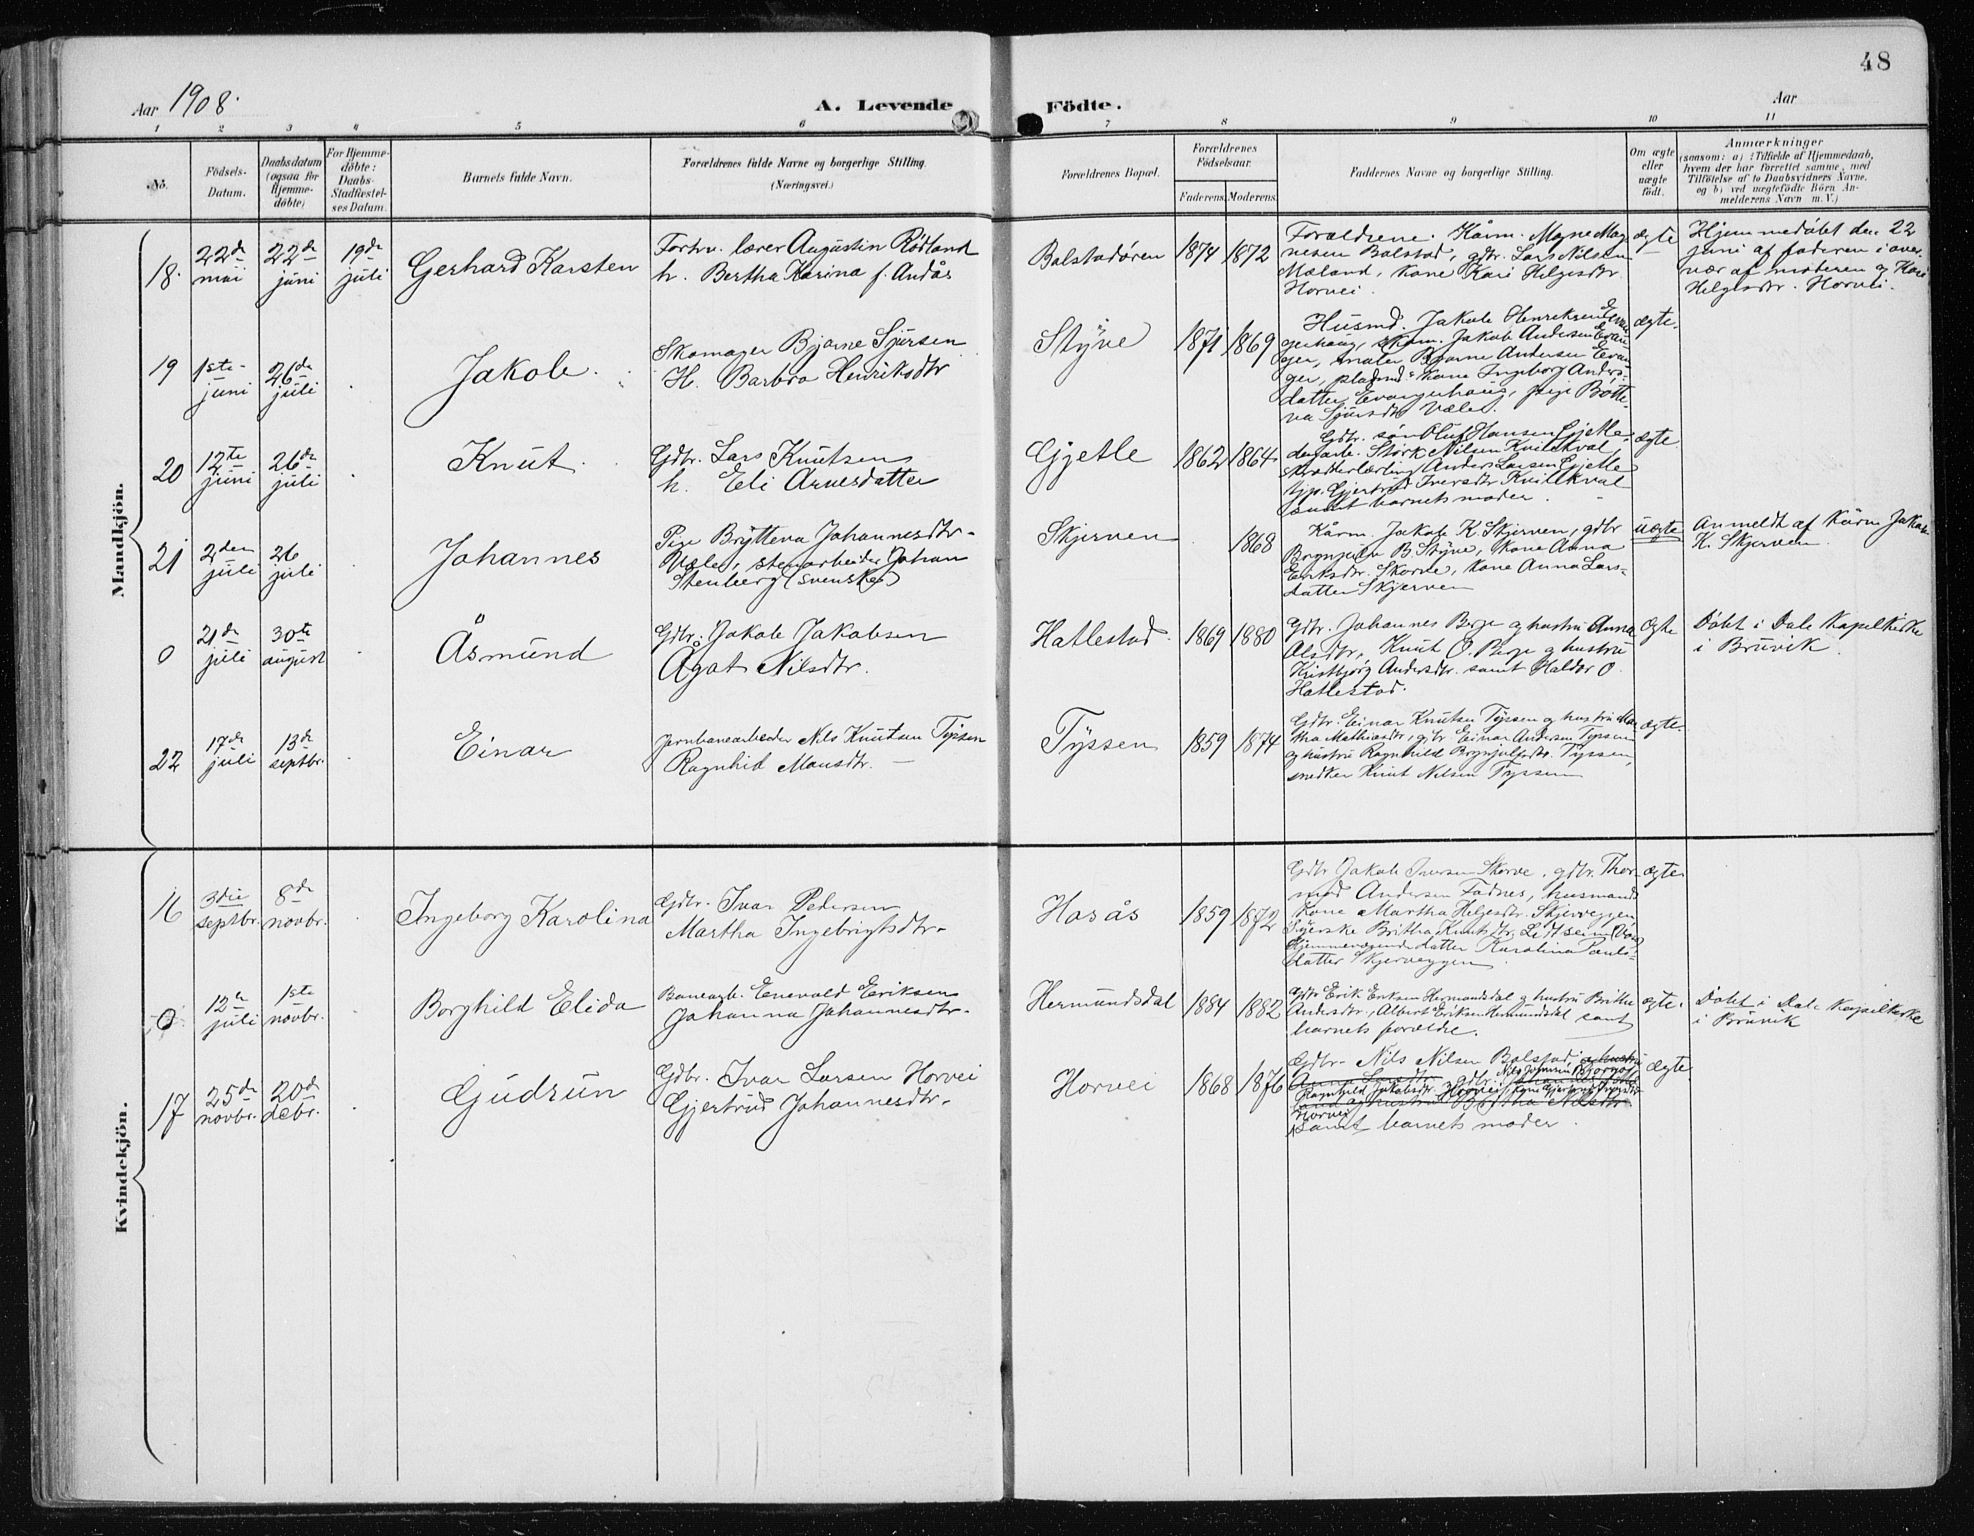 48
Aar 1908.
A. Levende Födte.
Aar
1 2 3 4 5 6 7 8 9 10 11
No.
Födsels-Datum.
Daabsdatum (ogsaa for Hjemme-döbte)
For Hjemme-döbte: Daabs-Stadfæstel-ses Datum.
Barnets fulde Navn.
Forældrenes fulde Navne og borgerlige Stilling.
(Næringsvei.)
Forældrenes Bopæl.
Forældrenes Födselsaar.
Faderens. Moderens.
Faddernes Navne og borgerlige Stilling.
Om ægte eller uægte födt.
Anmærkninger
(saasom: a) i Tilfælde af Hjemmedaab,
hvem der har forrettet samme, med
Tilföielse af to Daabsvidners Navne,
og b) ved uægtefödte Börn An-
melderens Navn m. V.)
Mandkjön.
18. 22de mai 22de juni 19de juli
Gerhard Karsten
Forhv. lærer Augustin Rödland
h. Bertha Karina f. Andås
Bolstadören 1874 1872
Forældrene. Kårm. Magne Mag-
nesen Bolstad, gdr. Lars Nilsen
Mæland, kone Kari Helgesdtr.
Horvei.
ægte
Hjemmedöbt den 22
juni af faderen i over-
vær af moderen og Kari
Helgesdtr. Horvei.
19 1ste juni 26de juli
Jakob.
Skomager Bjarne Sjursen
H. Barbra Henriksdtr
Styve 1871 1869
Husmd. Jakob Henriksen Evan-
gerhaug, skom. Jakob Andersen Evan-
ger, maler Bjarne Andersen Evan-
ger, pladsmd. kone Ingeborg Anders-
datter Evangerhaug, pige Brötte-
va Sjursdtr Væle.
ægte.
20 12te juni 26de juli
Knut.
Gdbr. Lars Knutsen
h. Eli Arnesdatter
Gjetle 1862 1864
Gdbr. sön Oluf Hansen Gjetle,
Störk Nilsen Kvilekval,
skrædderlærling Anders Larsen Gjetle
tjp. Gjertrud Iversdtr Kvilekval
samt barnets moder.
ægte
21 2den juli 26 juli
Johannes
Pige Brytteva Johannesdtr.
Væle, stenarbeider Johan
Stenberg (svenske)
Skjerven 1868
Kårm. Jakob K. Skjerven, gdbr
Brynjulv B. Styve, kone Anna
Eriksdtr. Skorve, kone Anna Lars-
datter Skjerven
uægte
Anmeldt af Kårm Jakob
K. Skjerven.
0 21de juli 30te august
Åsmund
Gdbr. Jakob Jakobsen
Ågat Nilsdtr.
Hatlestad. 1869 1880
Gdbr. Johannes Berge og hustru Anna
Olsdtr, Knut O. Berge og hustru
Kristbjörg Andersdtr. samt Haldor O.
Hatlestad.
ægte
Döbt i Dale Kapelkirke
i Bruvik.
22 17de juli 13de septbr.
Einar
Jernbanearbeider Nils Knutsen Tyssen
Ragnhild Monsdtr.
Tyssen 1859 1874
Gdbr. Einar Knutsen Tyssen og hustru Mar-
tha Mathiasdtr, gbr Einar Andersen Tyssen
og hustru Ragnhild Brynjulfsdtr. Tyssen,
snedker Knut Nilsen Tyssen
ægte
Kvindekjön.
16 3die septbr. 8de novbr.
Ingeborg Karolina
Gdbr. Ivar Pedersen
Martha Ingebrigtsdtr.
Horås 1859 1872
Gdbr Jakob Iversen Skorve, gdbr. Thor-
mod Andersen Fadnes, husmands
kone Martha Helgesdtr. Skjerveggen
Syerske Britha Knutsdtr.
Hjemmeværende datter Karolina Pauls-
datter Skjerveggen.
ægte
0 12te juli 1ste novbr.
Borghild Elida
Banearb. Enevald Eriksen
Johanna Johannesdtr.
Hermundsdal 1884 1882
Gdbr Erik Eriksen Hermundsdal og hustru Britha
Andersdtr, Albert Eriksen Hermundsdal samt
barnets forældre.
ægte.
Döbt i Dale Kapelkirke
i Bruvik
17 25de novbr. 20de debr.
Gudrun
Gdbr. Ivar Larsen Horvei
Gjertrud Johannesdtr.
Horvei 1868 1876
Gdbr. Nils Nilsen Bolstad, og hustru
Ragnhild Jakobsdtr Horvei, kone Gjertrud
Horvei
samt barnets moder.
ægte